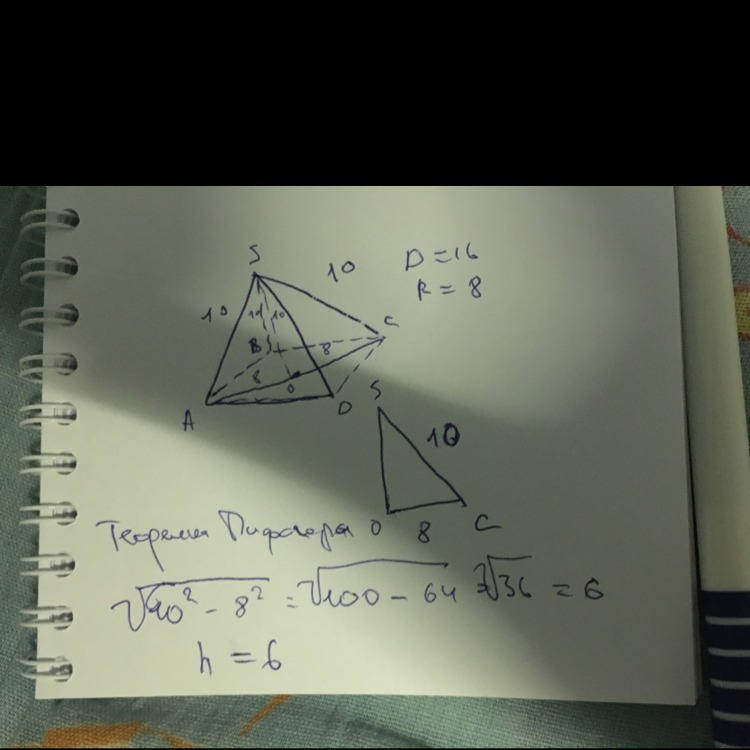 S
10
D = 16
R = 8
10
10
C
B
8
8
O
A
D
S
10
O 8 C
Теорема Пифагора
√10² - 8² = √100 - 64 = √36 = 6
h = 6